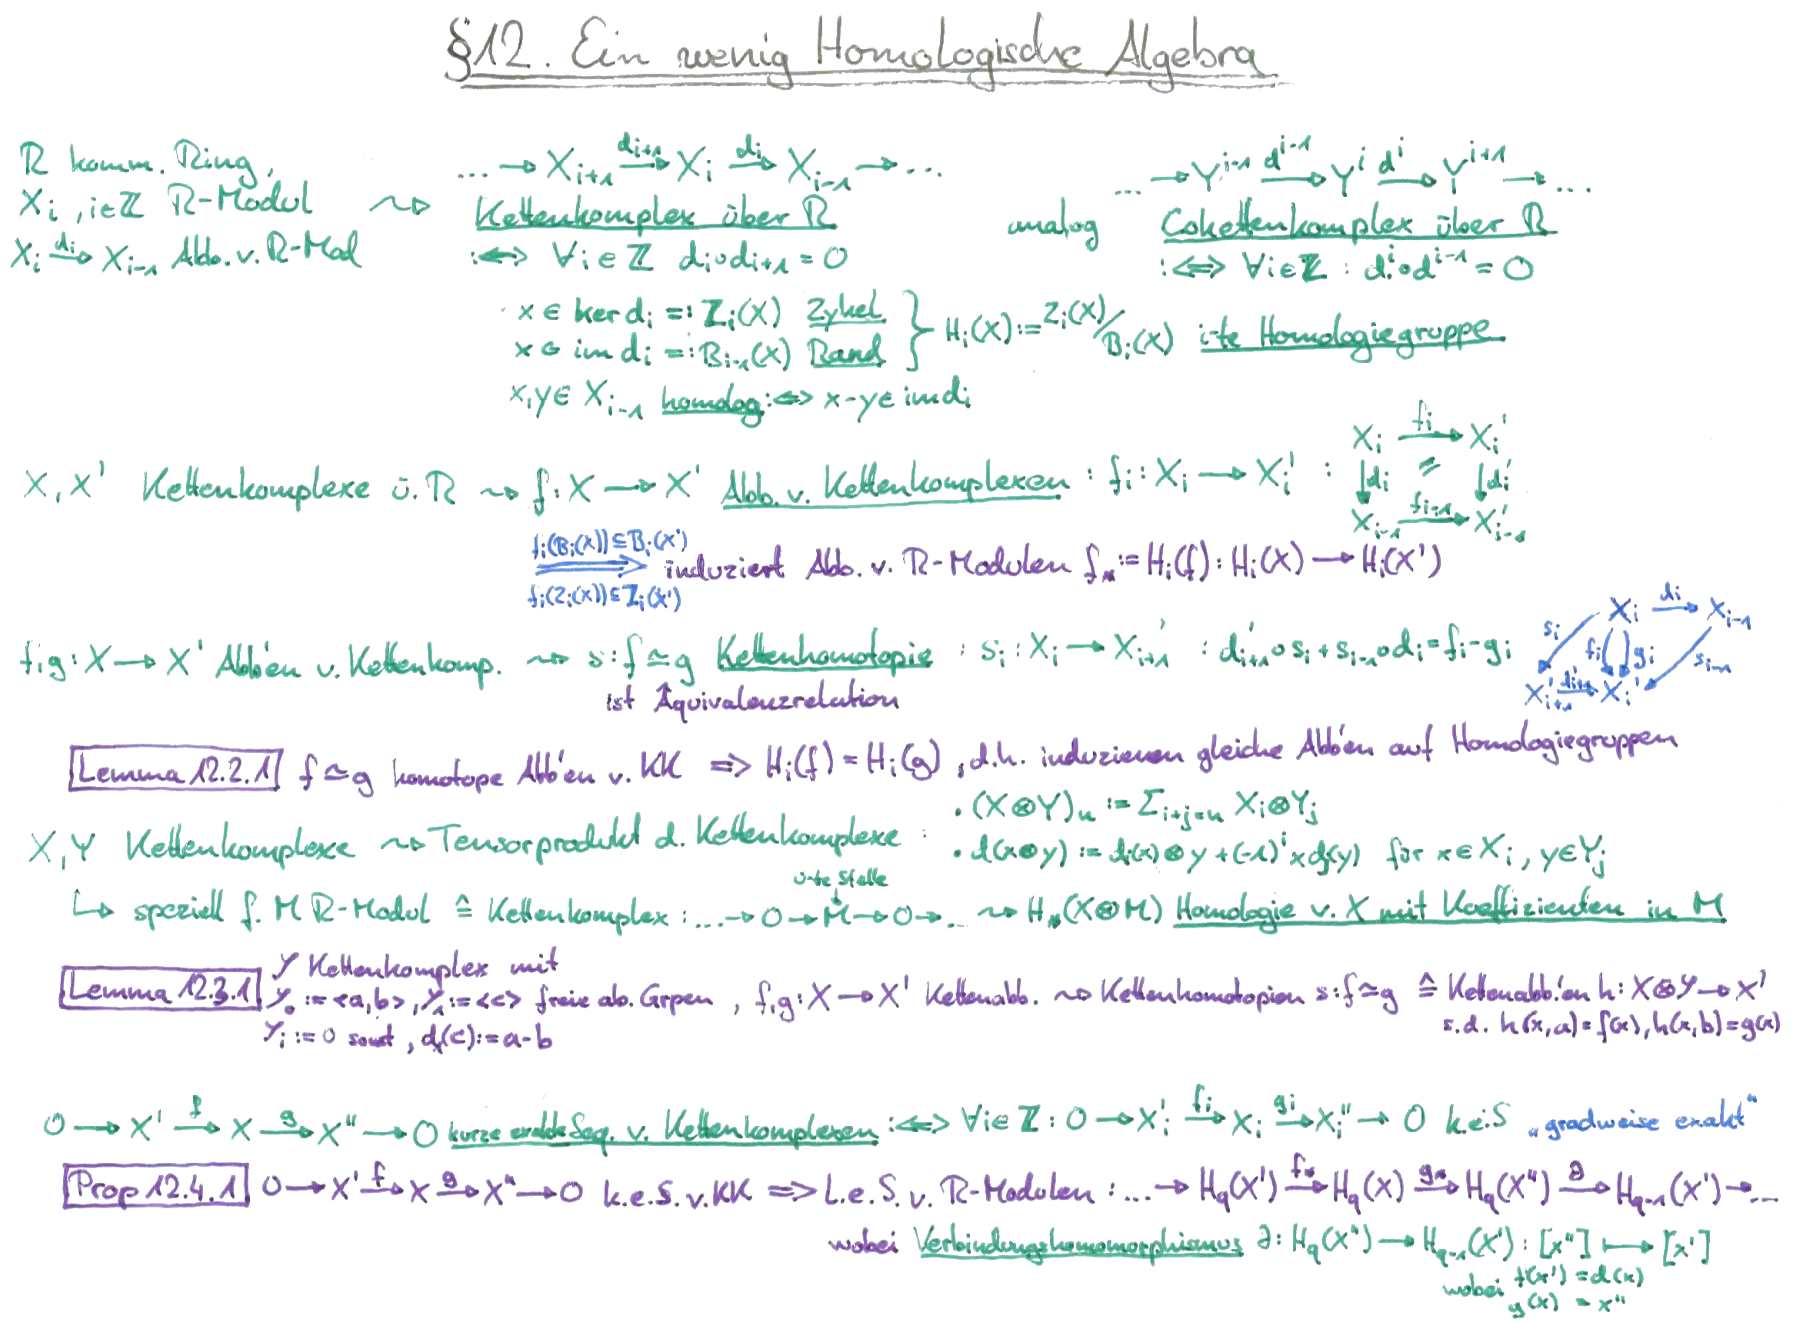 §12. Ein wenig Homologische Algebra
R komm. Ring,
X_i, i∈ℤ R-Modul
X_i →^{d_i} X_{i-1} Abb. v. R-Mod
⇝
... → X_{i+1} →^{d_{i+1}} X_i →^{d_i} X_{i-1} → ...
Kettenkomplex über R
:⟺ ∀i∈ℤ d_i∘d_{i+1} = 0
analog
... → Y^{i-1} →^{d^{i-1}} Y^i →^{d^i} Y^{i+1} → ...
Cokettenkomplex über R
:⟺ ∀i∈ℤ : d^i∘d^{i-1} = 0
x ∈ ker d_i =: Z_i(X) Zykel
x ∈ im d_i =: B_{i-1}(X) Rand
} H_i(X) := Z_i(X)/B_i(X) i-te Homologiegruppe
x,y ∈ X_{i-1} homolog :⟺ x-y ∈ im d_i
X, X' Kettenkomplexe ü. R ⇝ f: X → X' Abb. v. Kettenkomplexen : f_i: X_i → X_i' :
X_i →^{f_i} X_i'
↓d_i = ↓d_i'
X_{i-1} →^{f_{i-1}} X'_{i-1}
f_i(B_i(X)) ⊆ B_i(X')
⟹ induziert Abb. v. R-Modulen f_* := H_i(f): H_i(X) → H_i(X')
f_i(Z_i(X)) ⊆ Z_i(X')
f,g: X → X' Abb'en v. Kettenkomp. ⇝ s: f≃g Kettenhomotopie : s_i: X_i → X'_{i+1} : d'_{i+1}∘s_i + s_{i-1}∘d_i = f_i - g_i
ist Äquivalenzrelation
X_i →^{d_i} X_{i-1}
s_i f_i g_i s_{i-1}
X'_{i+1} →^{d'_{i+1}} X_i'
Lemma 12.2.1 f≃g homotope Abb'en v. KK ⟹ H_i(f) = H_i(g), d.h. induzieren gleiche Abb'en auf Homologiegruppen
X, Y Kettenkomplexe ⇝ Tensorprodukt d. Kettenkomplexe :
• (X⊗Y)_n := Σ_{i+j=n} X_i⊗Y_j
• d(x⊗y) := d_i(x)⊗y + (-1)^i x d_j(y) für x∈X_i, y∈Y_j
0-te Stelle
↓
↳ speziell f. M R-Modul ≙ Kettenkomplex : ... → 0 → M → 0 → ... ⇝ H_*(X⊗M) Homologie v. X mit Koeffizienten in M
Lemma 12.3.1 Y Kettenkomplex mit
Y_0 := <a,b>, Y_1 := <c> freie ab. Grpen, f,g: X → X' Kettenabb. ⇝ Kettenhomotopien s: f≃g ≙ Kettenabb.'en h: X⊗Y → X'
Y_i := 0 sonst, d_1(c) := a-b
s.d. h(x,a) = f(x), h(x,b) = g(x)
0 → X' →^f X →^g X'' → 0 kurze exakte Seq. v. Kettenkomplexen :⟺ ∀i∈ℤ: 0 → X_i' →^{f_i} X_i →^{g_i} X_i'' → 0 k.e.S „gradweise exakt“
Prop 12.4.1 0 → X' →^f X →^g X'' → 0 k.e.S. v. KK ⟹ L.e.S. v. R-Modulen : ... → H_q(X') →^{f_*} H_q(X) →^{g_*} H_q(X'') →^∂ H_{q-1}(X') → ...
wobei Verbindungshomomorphismus ∂: H_q(X'') → H_{q-1}(X') : [x''] ↦ [x']
wobei f(x') = d(x)
g(x) = x''